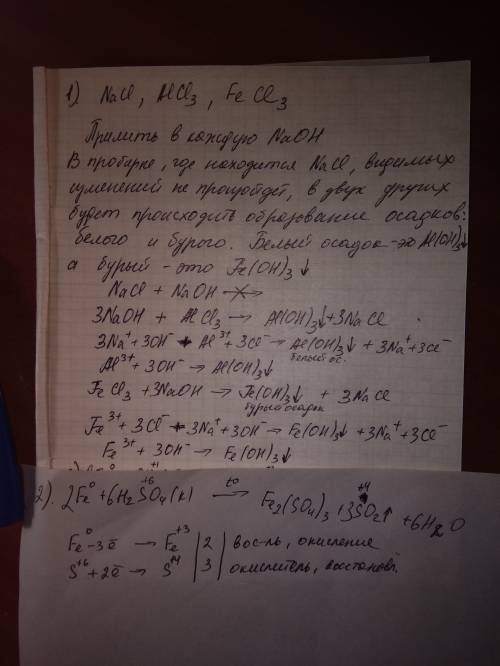 1) NaCl, AlCl₃, FeCl₃
Прилить в каждую NaOH
В пробирке, где находится NaCl, видимых
изменений не произойдет, в двух других
будет происходить образование осадков:
белого и бурого. Белый осадок - это Al(OH)₃↓
а бурый - это Fe(OH)₃↓
NaCl + NaOH →
3NaOH + AlCl₃ → Al(OH)₃↓ + 3NaCl
3Na⁺ + 3OH⁻ + Al³⁺ + 3Cl⁻ → Al(OH)₃↓ + 3Na⁺ + 3Cl⁻
белый ос.
Al³⁺ + 3OH⁻ → Al(OH)₃↓
FeCl₃ + 3NaOH → Fe(OH)₃↓ + 3NaCl
бурый осадок
Fe³⁺ + 3Cl⁻ + 3Na⁺ + 3OH⁻ → Fe(OH)₃↓ + 3Na⁺ + 3Cl⁻
Fe³⁺ + 3OH⁻ → Fe(OH)₃↓
2). 2Fe⁰ + 6H₂S⁺⁶O₄(к) t° → Fe₂(SO₄)₃ + 3S⁺⁴O₂↑ + 6H₂O
Fe⁰ - 3ē → Fe⁺³ | 2 | вос-ль, окисление
S⁺⁶ + 2ē → S⁺⁴ | 3 | окислитель, восстановл.